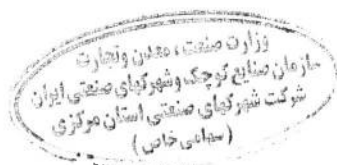 وزارت صنعت، معدن وتجارت
سازمان صنایع کوچک وشهرکهای صنعتی ایران
شرکت شهرکهای صنعتی استان مرکزی
(سهامی خاص)